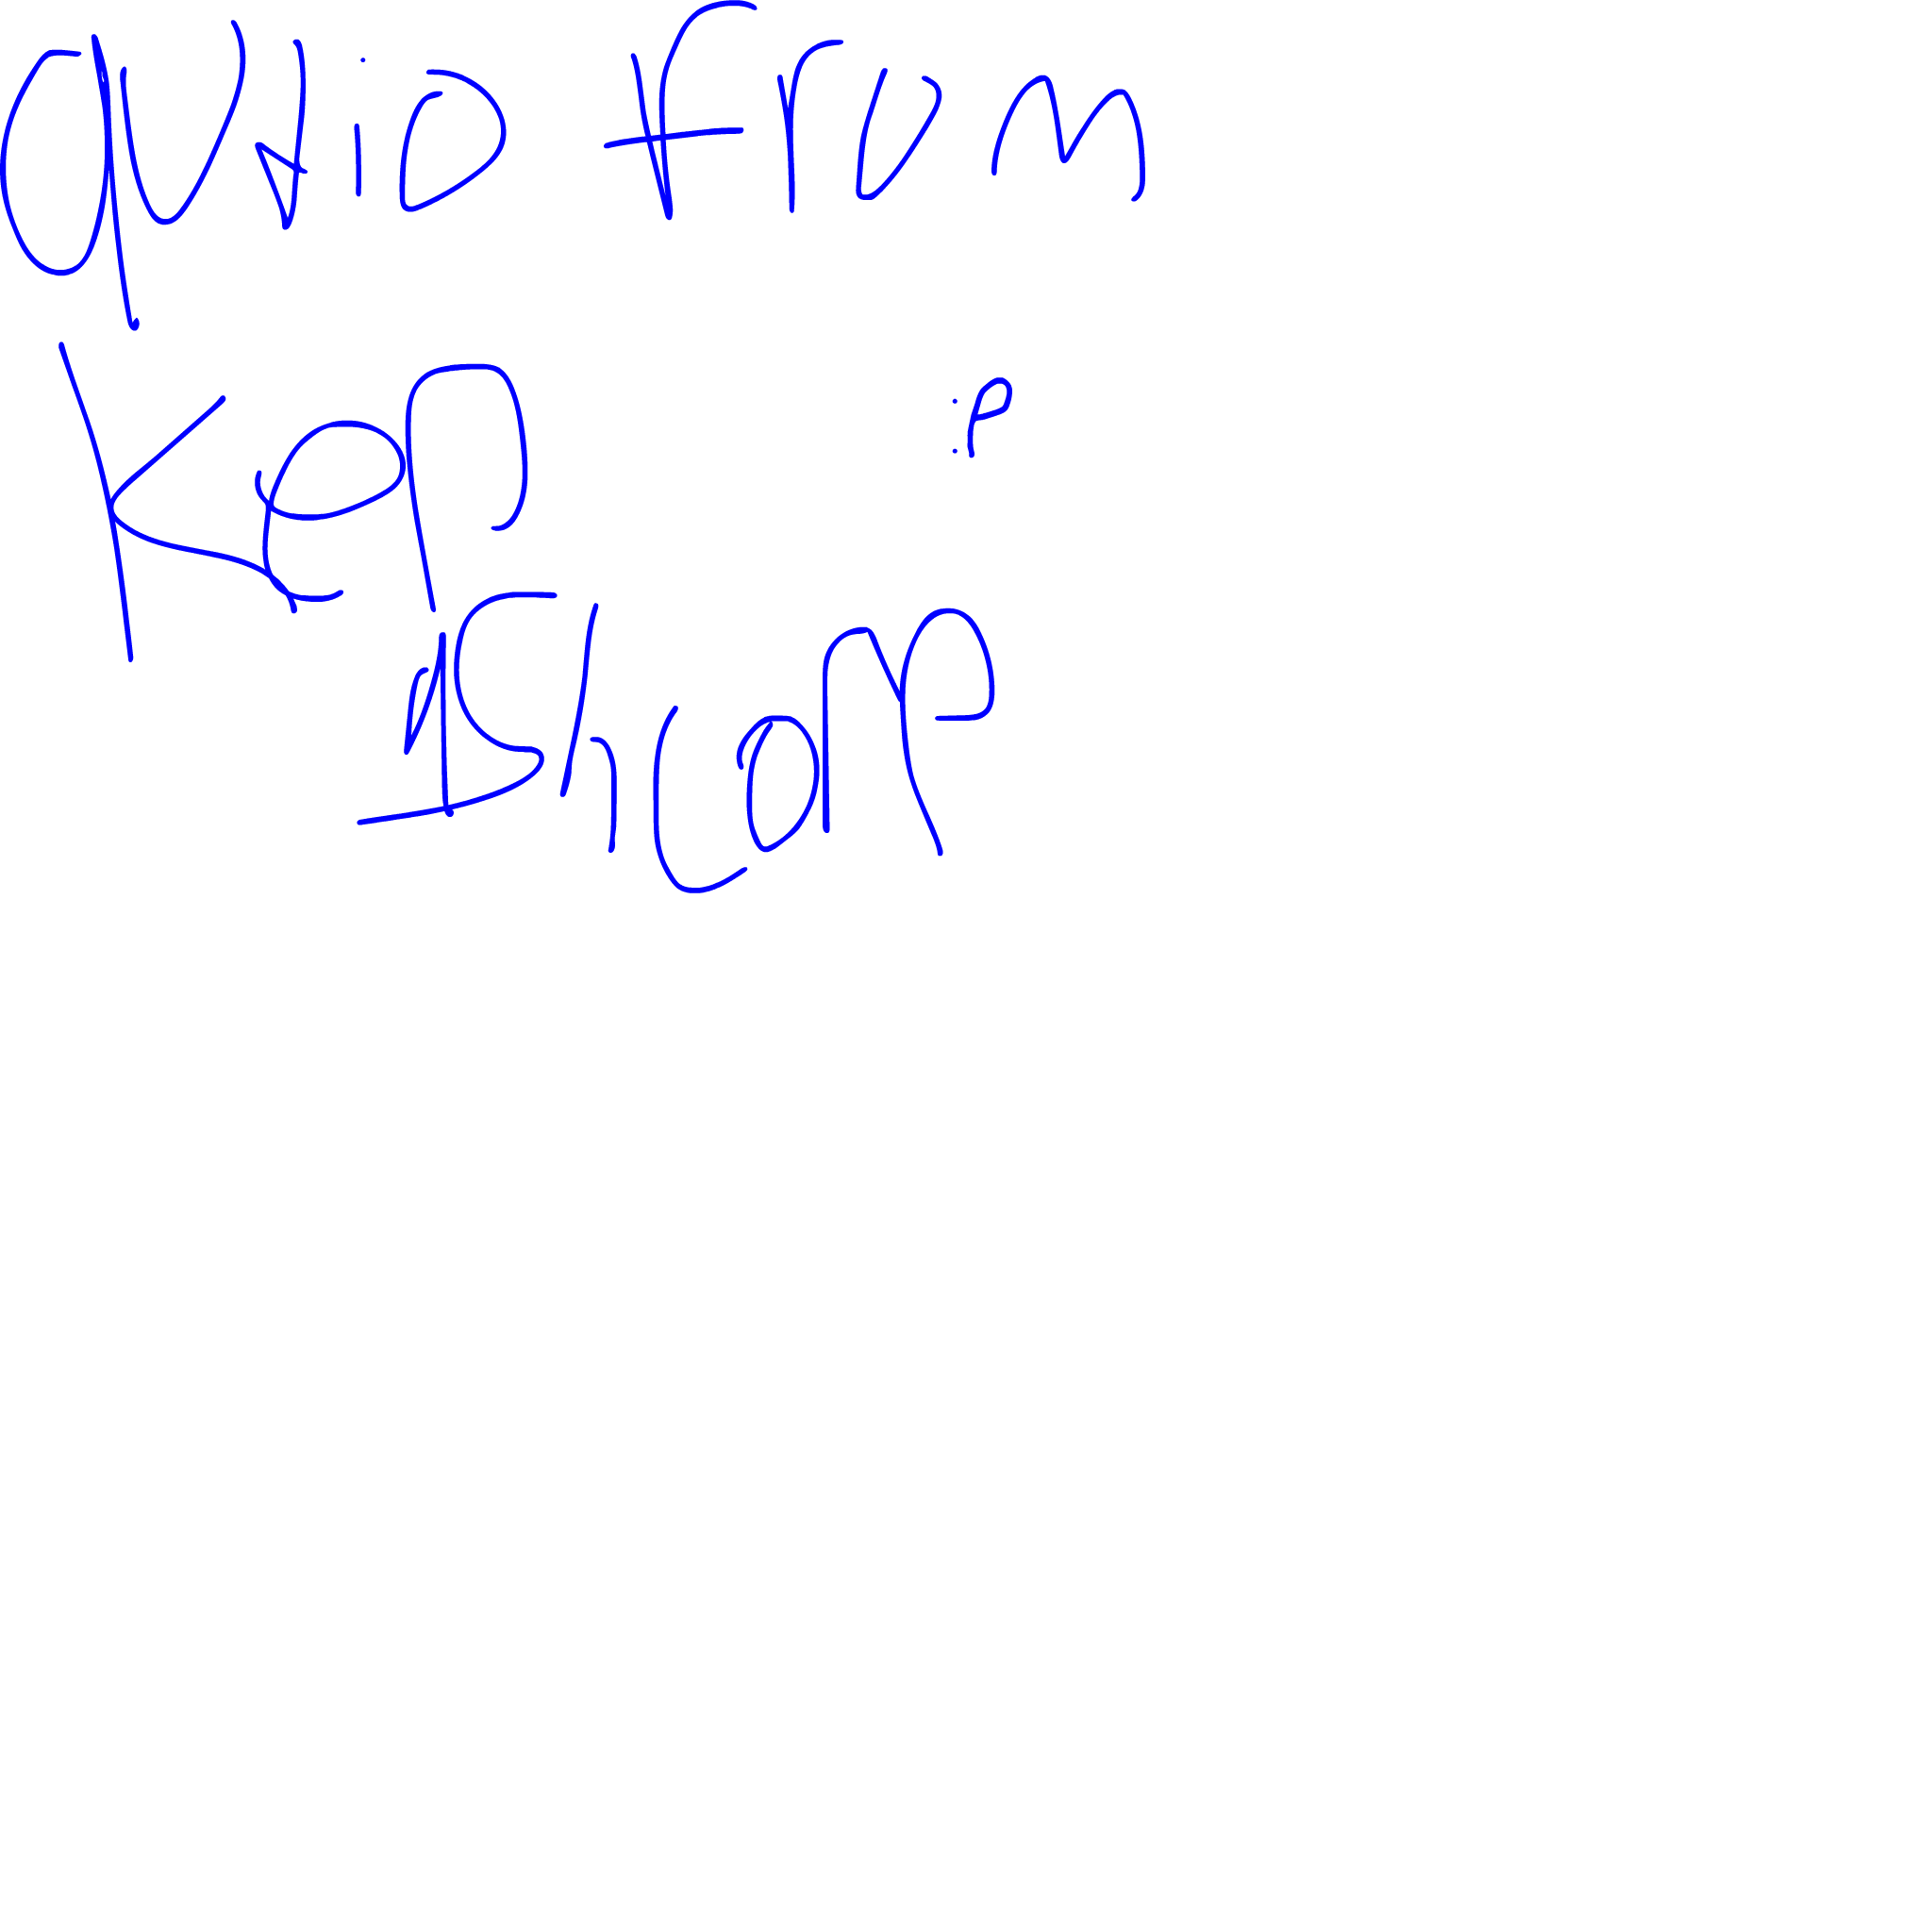 audio from
Kep :P
1Shcorp